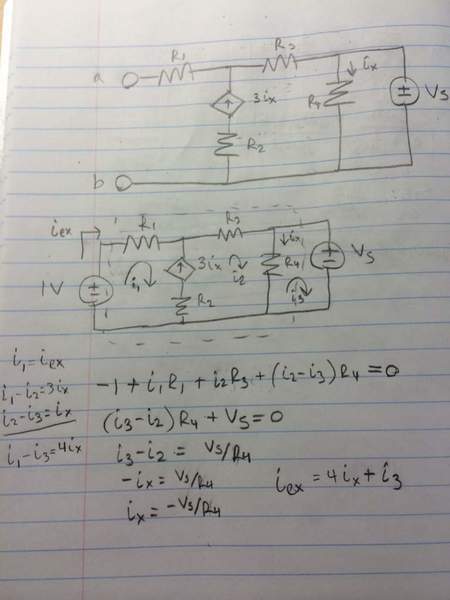 R1
R3
a
3ix
ix
R4
Vs
R2
b
iex
R1
R3
1V
i1
3ix
i2
ix
R4
Vs
R2
i3
i1 = iex
i1 - i2 = 3ix
i2 - i3 = ix
i1 - i3 = 4ix
-1 + i1R1 + i2R3 + (i2 - i3)R4 = 0
(i3 - i2)R4 + Vs = 0
i3 - i2 = Vs/R4
-ix = Vs/R4
ix = -Vs/R4
iex = 4ix + i3